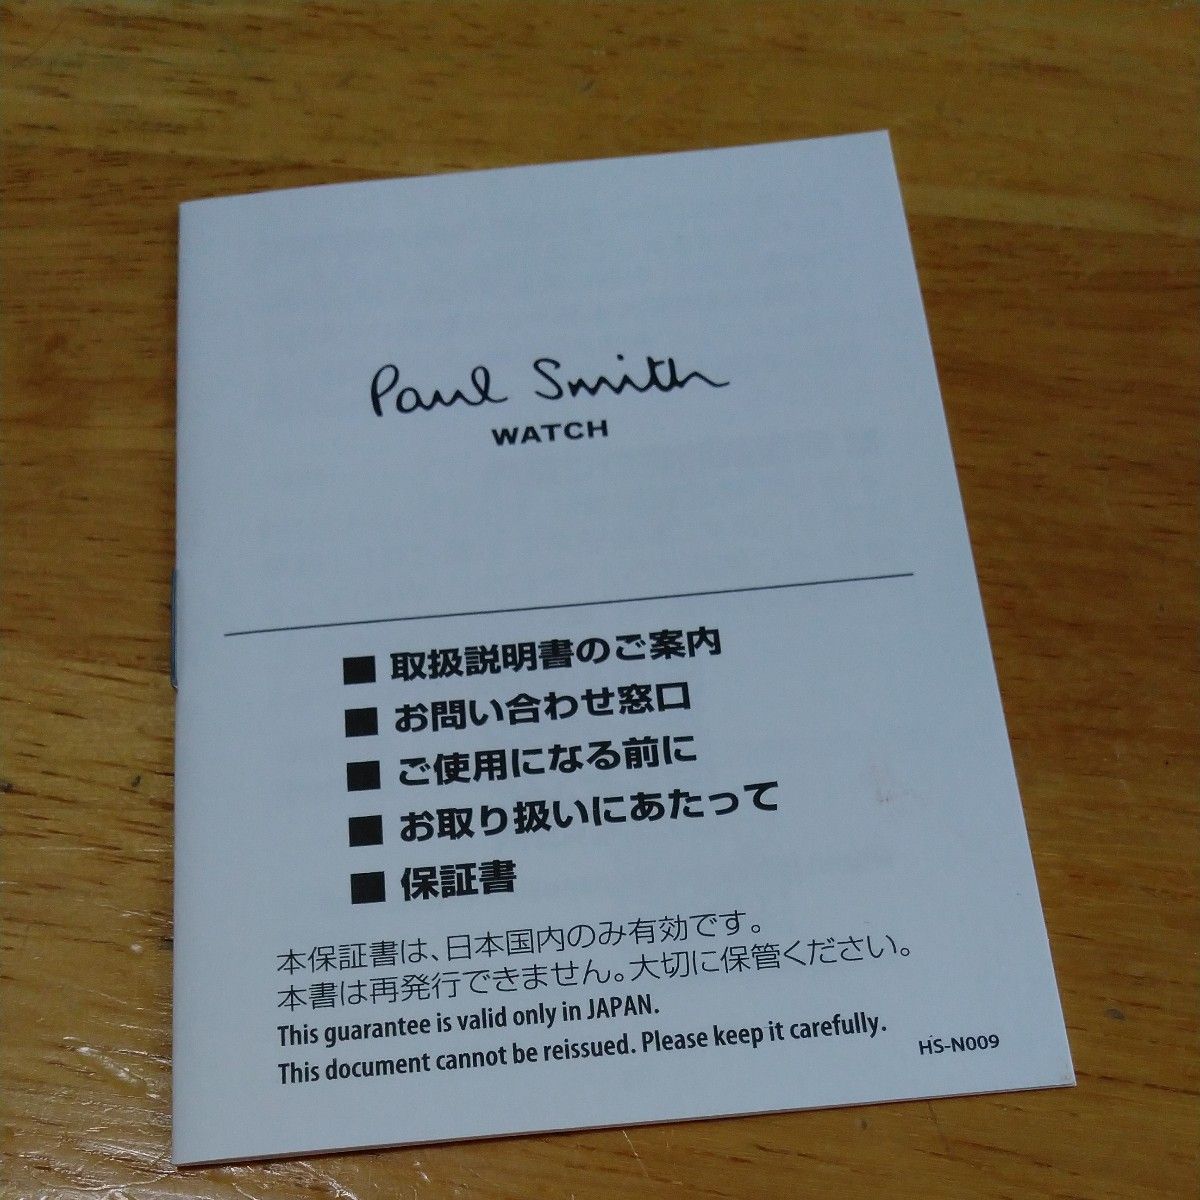 Paul Smith
WATCH
■ 取扱説明書のご案内
■ お問い合わせ窓口
■ ご使用になる前に
■ お取り扱いにあたって
■ 保証書
本保証書は、日本国内のみ有効です。
本書は再発行できません。大切に保管ください。
This guarantee is valid only in JAPAN.
This document cannot be reissued. Please keep it carefully.
HS-N009